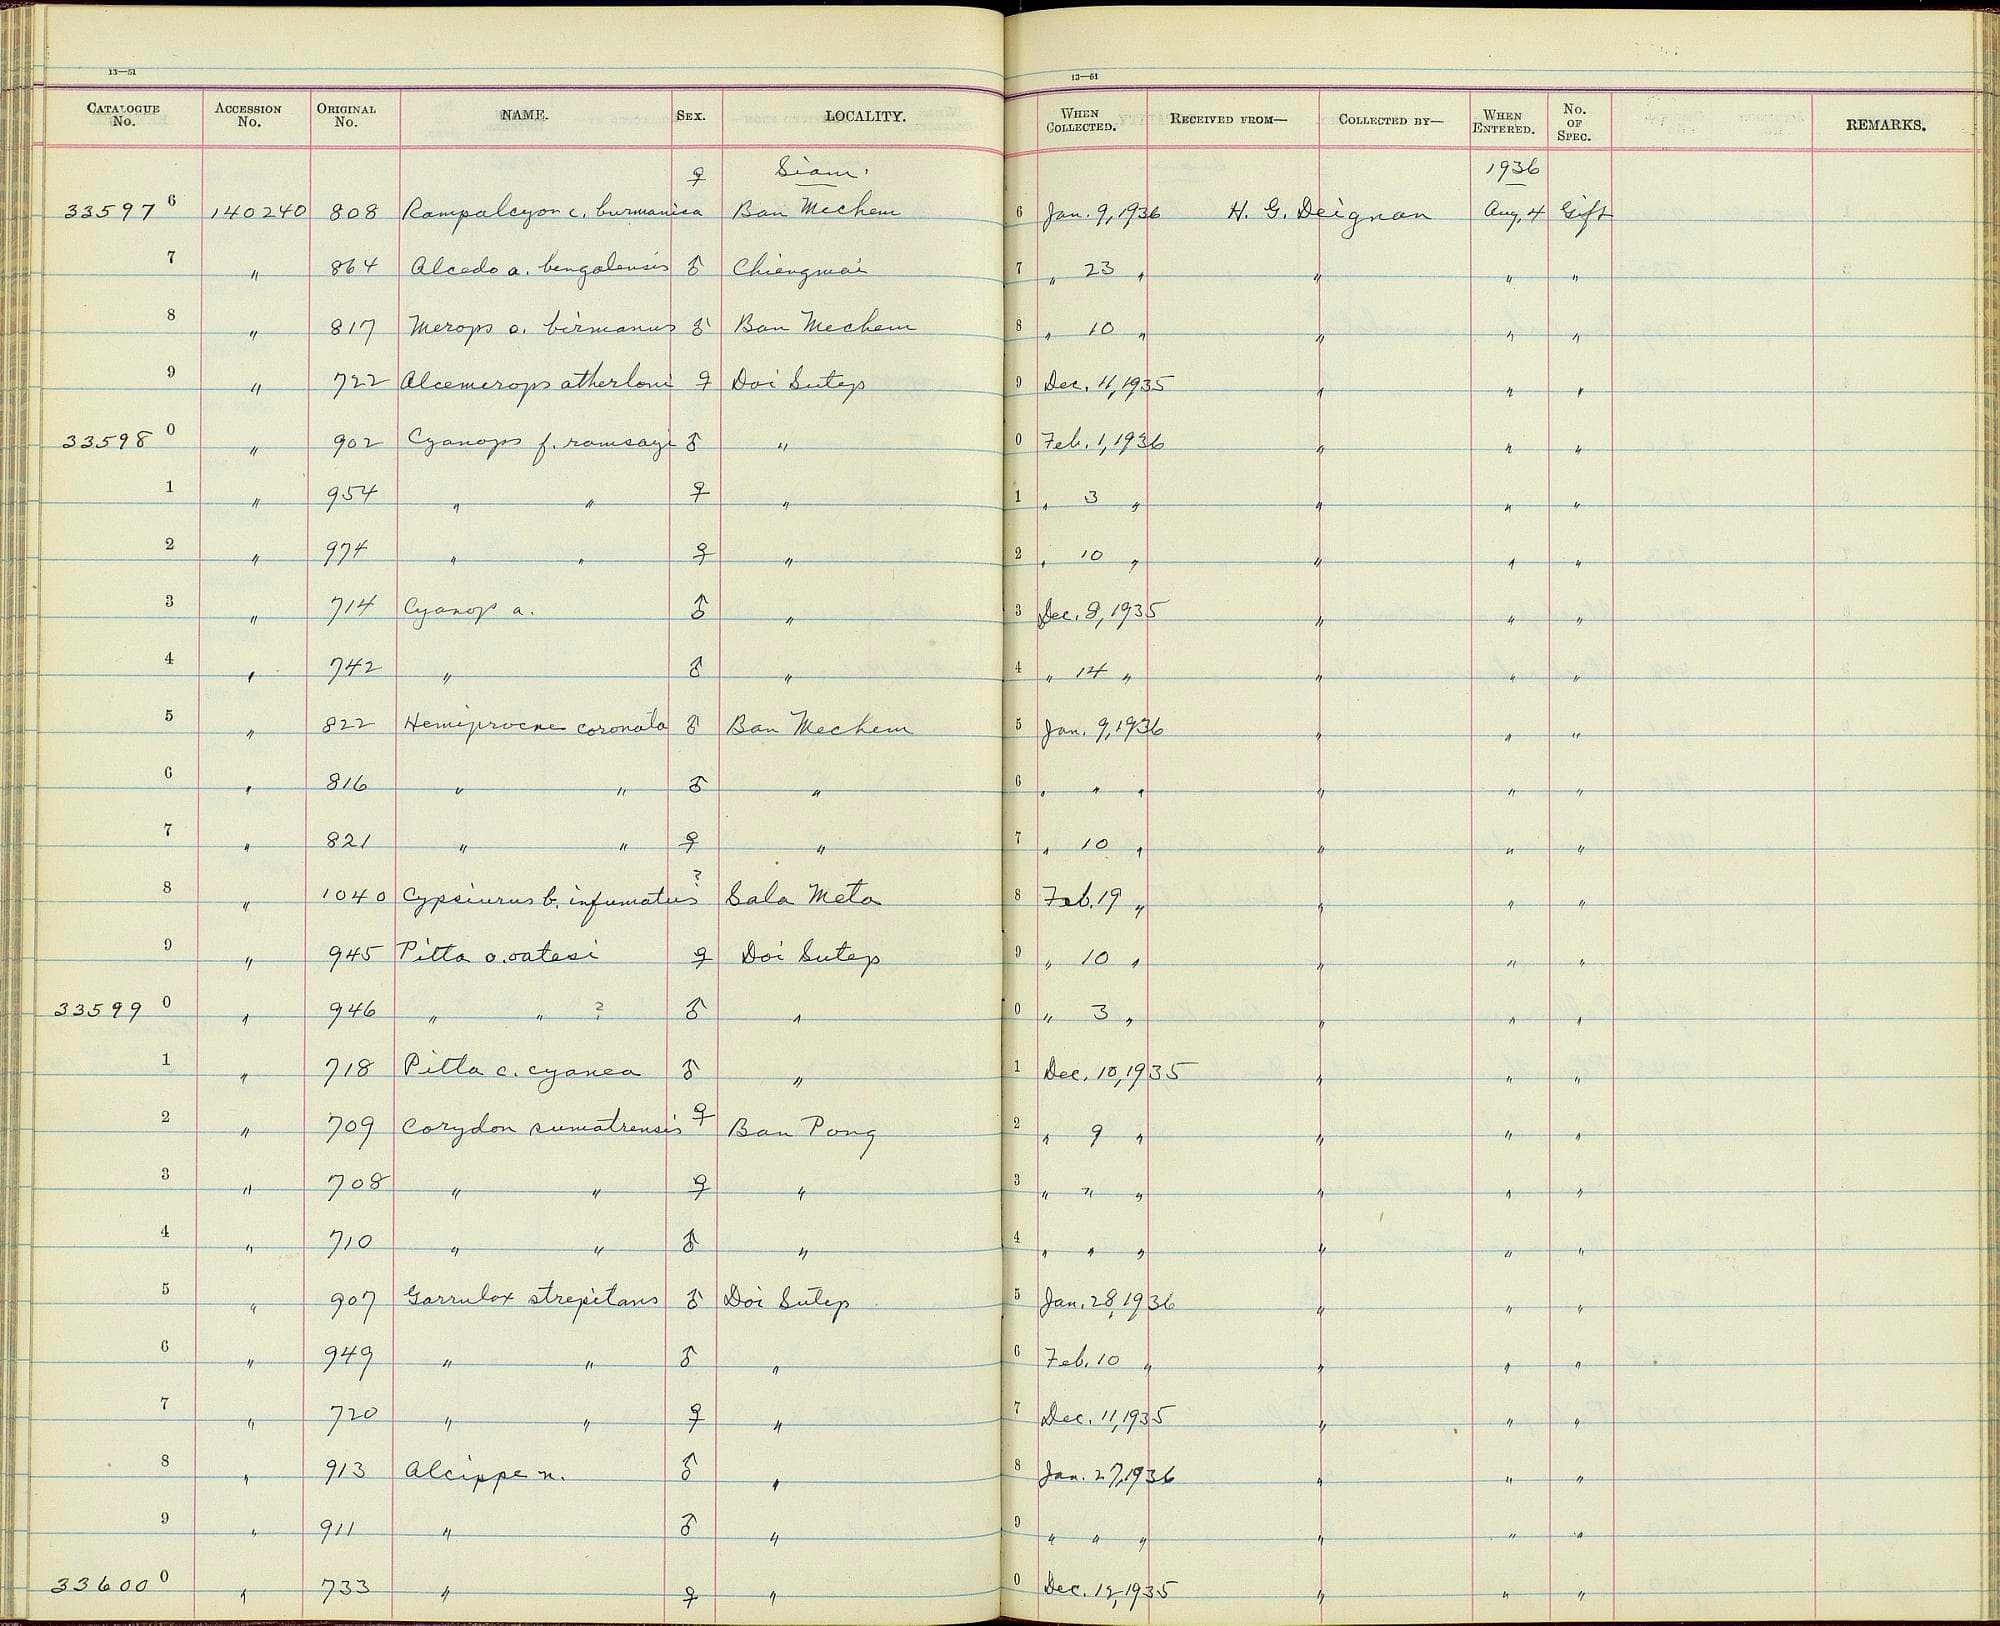 13—51
13—51
CATALOGUE No. ACCESSION No. ORIGINAL No. NAME. SEX. LOCALITY. WHEN COLLECTED. RECEIVED FROM— COLLECTED BY— WHEN ENTERED. No. OF SPEC. REMARKS.
♀ Siam. 1936
33597 6 140240 808 Rampalcyon c. burmanica Ban Mechem 6 Jan. 9, 1936 H. G. Deignan Aug. 4 Gift
7 " 864 Alcedo a. bengalensis ♂ Chiengmai 7 " 23 " " " "
8 " 817 Merops o. birmanus ♂ Ban Mechem 8 " 10 " " " "
9 " 722 Alcemerops atherloni ♀ Doi Sutep 9 Dec. 11, 1935 " " "
33598 0 " 902 Cyanops f. ramsayi ♂ " 0 Feb. 1, 1936 " " "
1 " 954 " " ♀ " 1 " 3 " " " "
2 " 974 " " ♀ " 2 " 10 " " " "
3 " 714 Cyanop a. ♂ " 3 Dec. 8, 1935 " " "
4 " 742 " ♂ " 4 " 14 " " " "
5 " 822 Hemiprocne coronata ♂ Ban Mechem 5 Jan. 9, 1936 " " "
6 " 816 " " ♂ " 6 " " " " " "
7 " 821 " " ♀ " 7 " 10 " " " "
8 " 1040 Cypsiurus b. infumatus ? Sala Meta 8 Feb. 19 " " " "
9 " 945 Pitta o. oatesi ♀ Doi Sutep 9 " 10 " " " "
33599 0 " 946 " " ? ♂ " 0 " 3 " " " "
1 " 718 Pitta c. cyanea ♂ " 1 Dec. 10, 1935 " " "
2 " 709 Corydon sumatrensis ♀ Ban Pong 2 " 9 " " " "
3 " 708 " " ♀ " 3 " " " " " "
4 " 710 " " ♂ " 4 " " " " " "
5 " 907 Garrulax strepitans ♂ Doi Sutep 5 Jan. 28, 1936 " " "
6 " 949 " " ♂ " 6 Feb. 10 " " " "
7 " 720 " " ♀ " 7 Dec. 11, 1935 " " "
8 " 913 Alcippe n. ♂ " 8 Jan. 27, 1936 " " "
9 " 911 " ♂ " 9 " " " " " "
33600 0 " 733 " ♀ " 0 Dec. 12, 1935 " " "